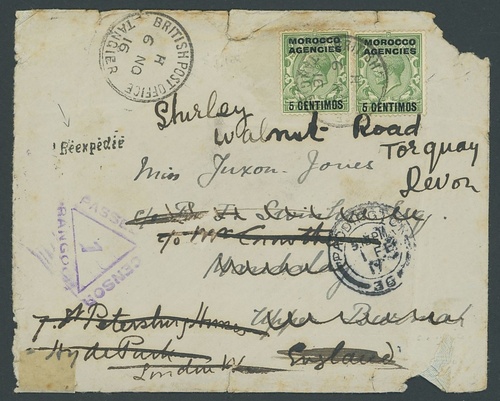 BRITISH POST OFFICE
H
6 NO
16
TANGIER
MOROCCO AGENCIES
MOROCCO AGENCIES
5 CENTIMOS
5 CENTIMOS
Shirley
Walnut Road
Torquay
Devon
Réexpédié
Miss Juxon-Jones
c/o Mrs
PASSED CENSOR RANGOON
1
PADDINGTON
1 FE
17
36
Mandalay
7. St Petersburg
Upper Burmah
Hyde Park
London W
England